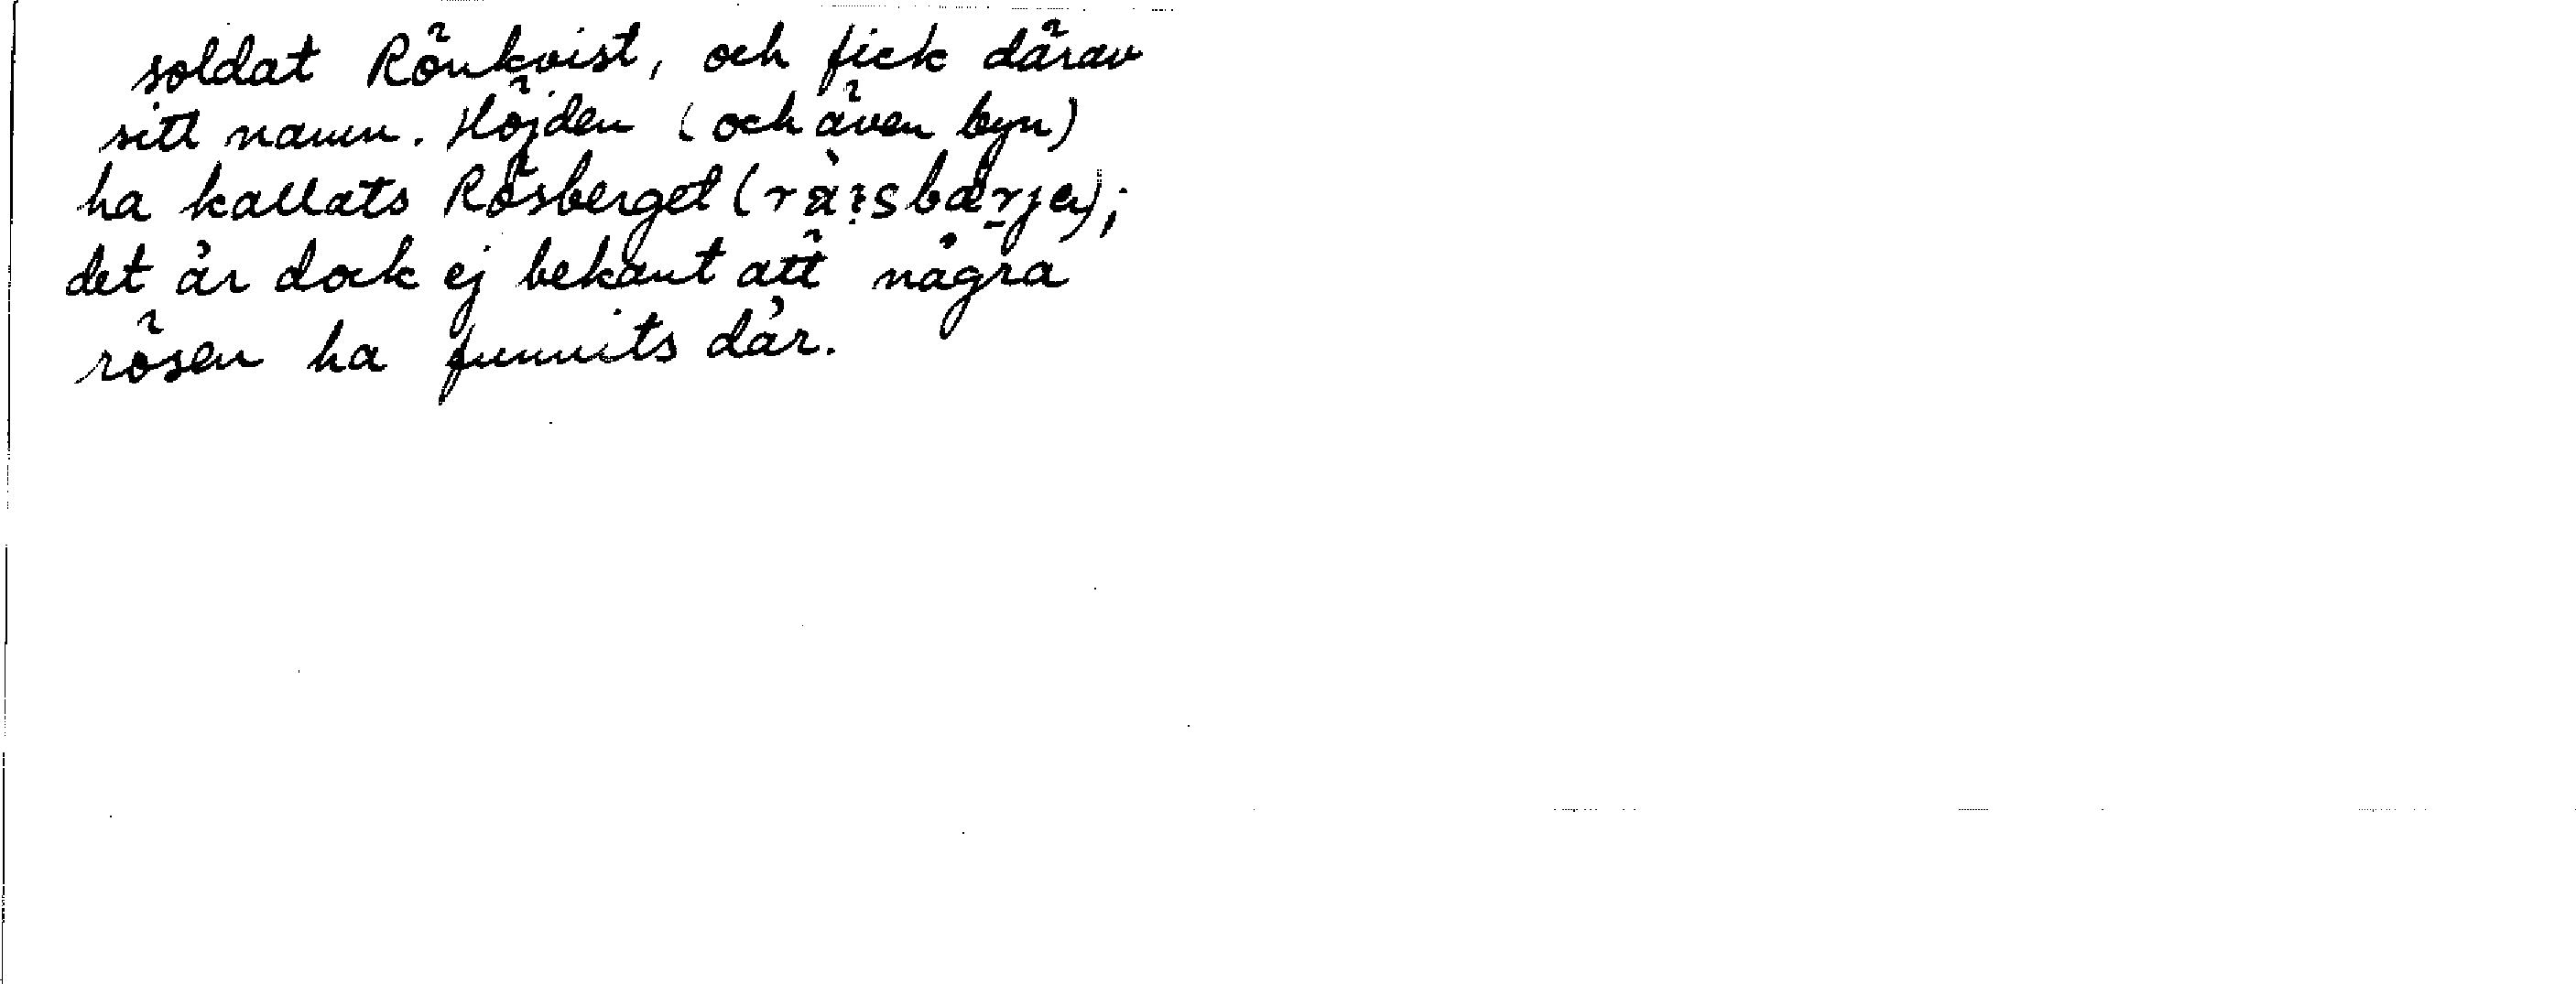 soldat Rönkvist, och fick därav
sitt namn. Höjden (och även byn)
ha kallats Rösberget
det är dock ej bekant att några
rösen ha funnits där.